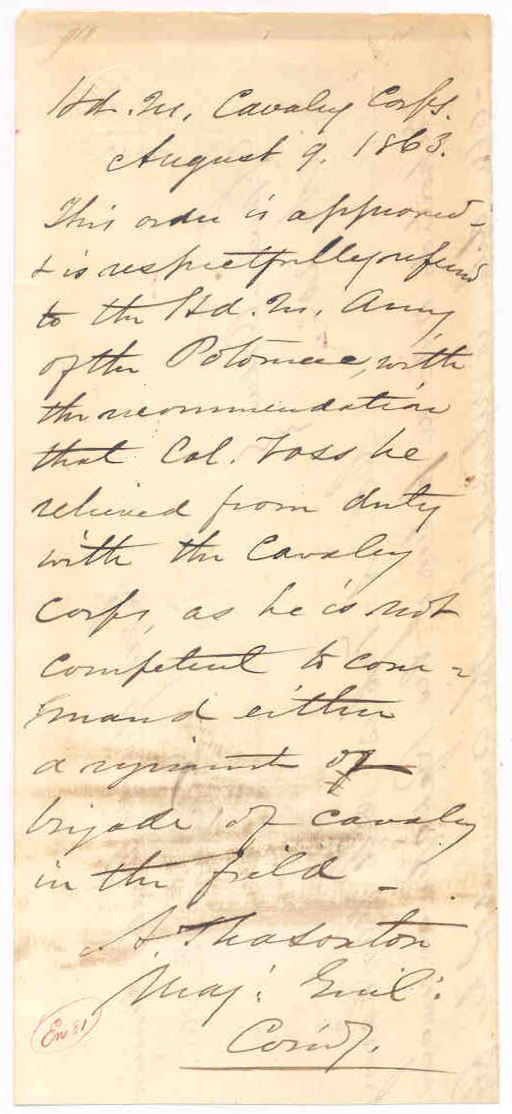 Hd. Qr. Cavalry Corps.
August 9. 1863.
This order is approved -
& is respectfully referred
to the Hd. Qr. Army
of the Potomac, with
the recommendation
that Col. Foss be
relieved from duty
with the Cavalry
Corps, as he is not
competent to com-
mand either
a regiment or
brigade of cavalry
in the field -
A Pleasonton
Maj. Genl.
Comd.
En 81